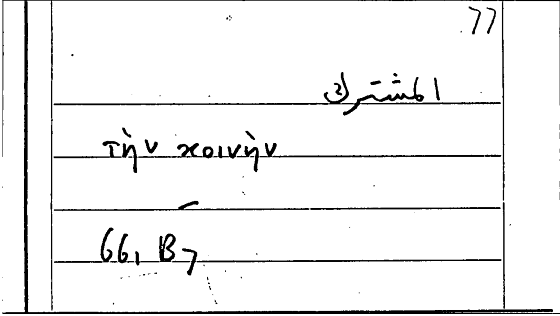 77
المشترك
τὴν κοινὴν
–
66, B7